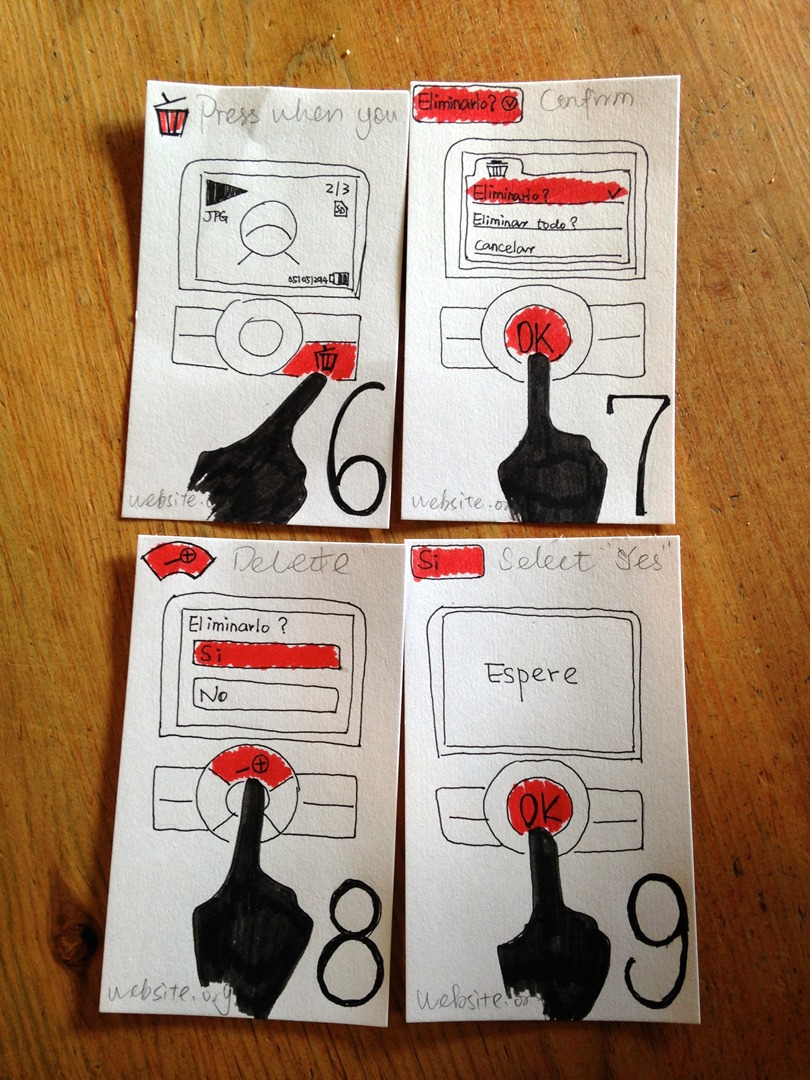 Press when you
2/3
JPG
SD
6
website.
Eliminarlo? Confirm
Eliminarlo?
Eliminar todo?
Cancelar
OK
7
website.or
Delete
Eliminarlo?
Si
No
8
website.org
Si Select "Yes"
Espere
OK
9
website.or